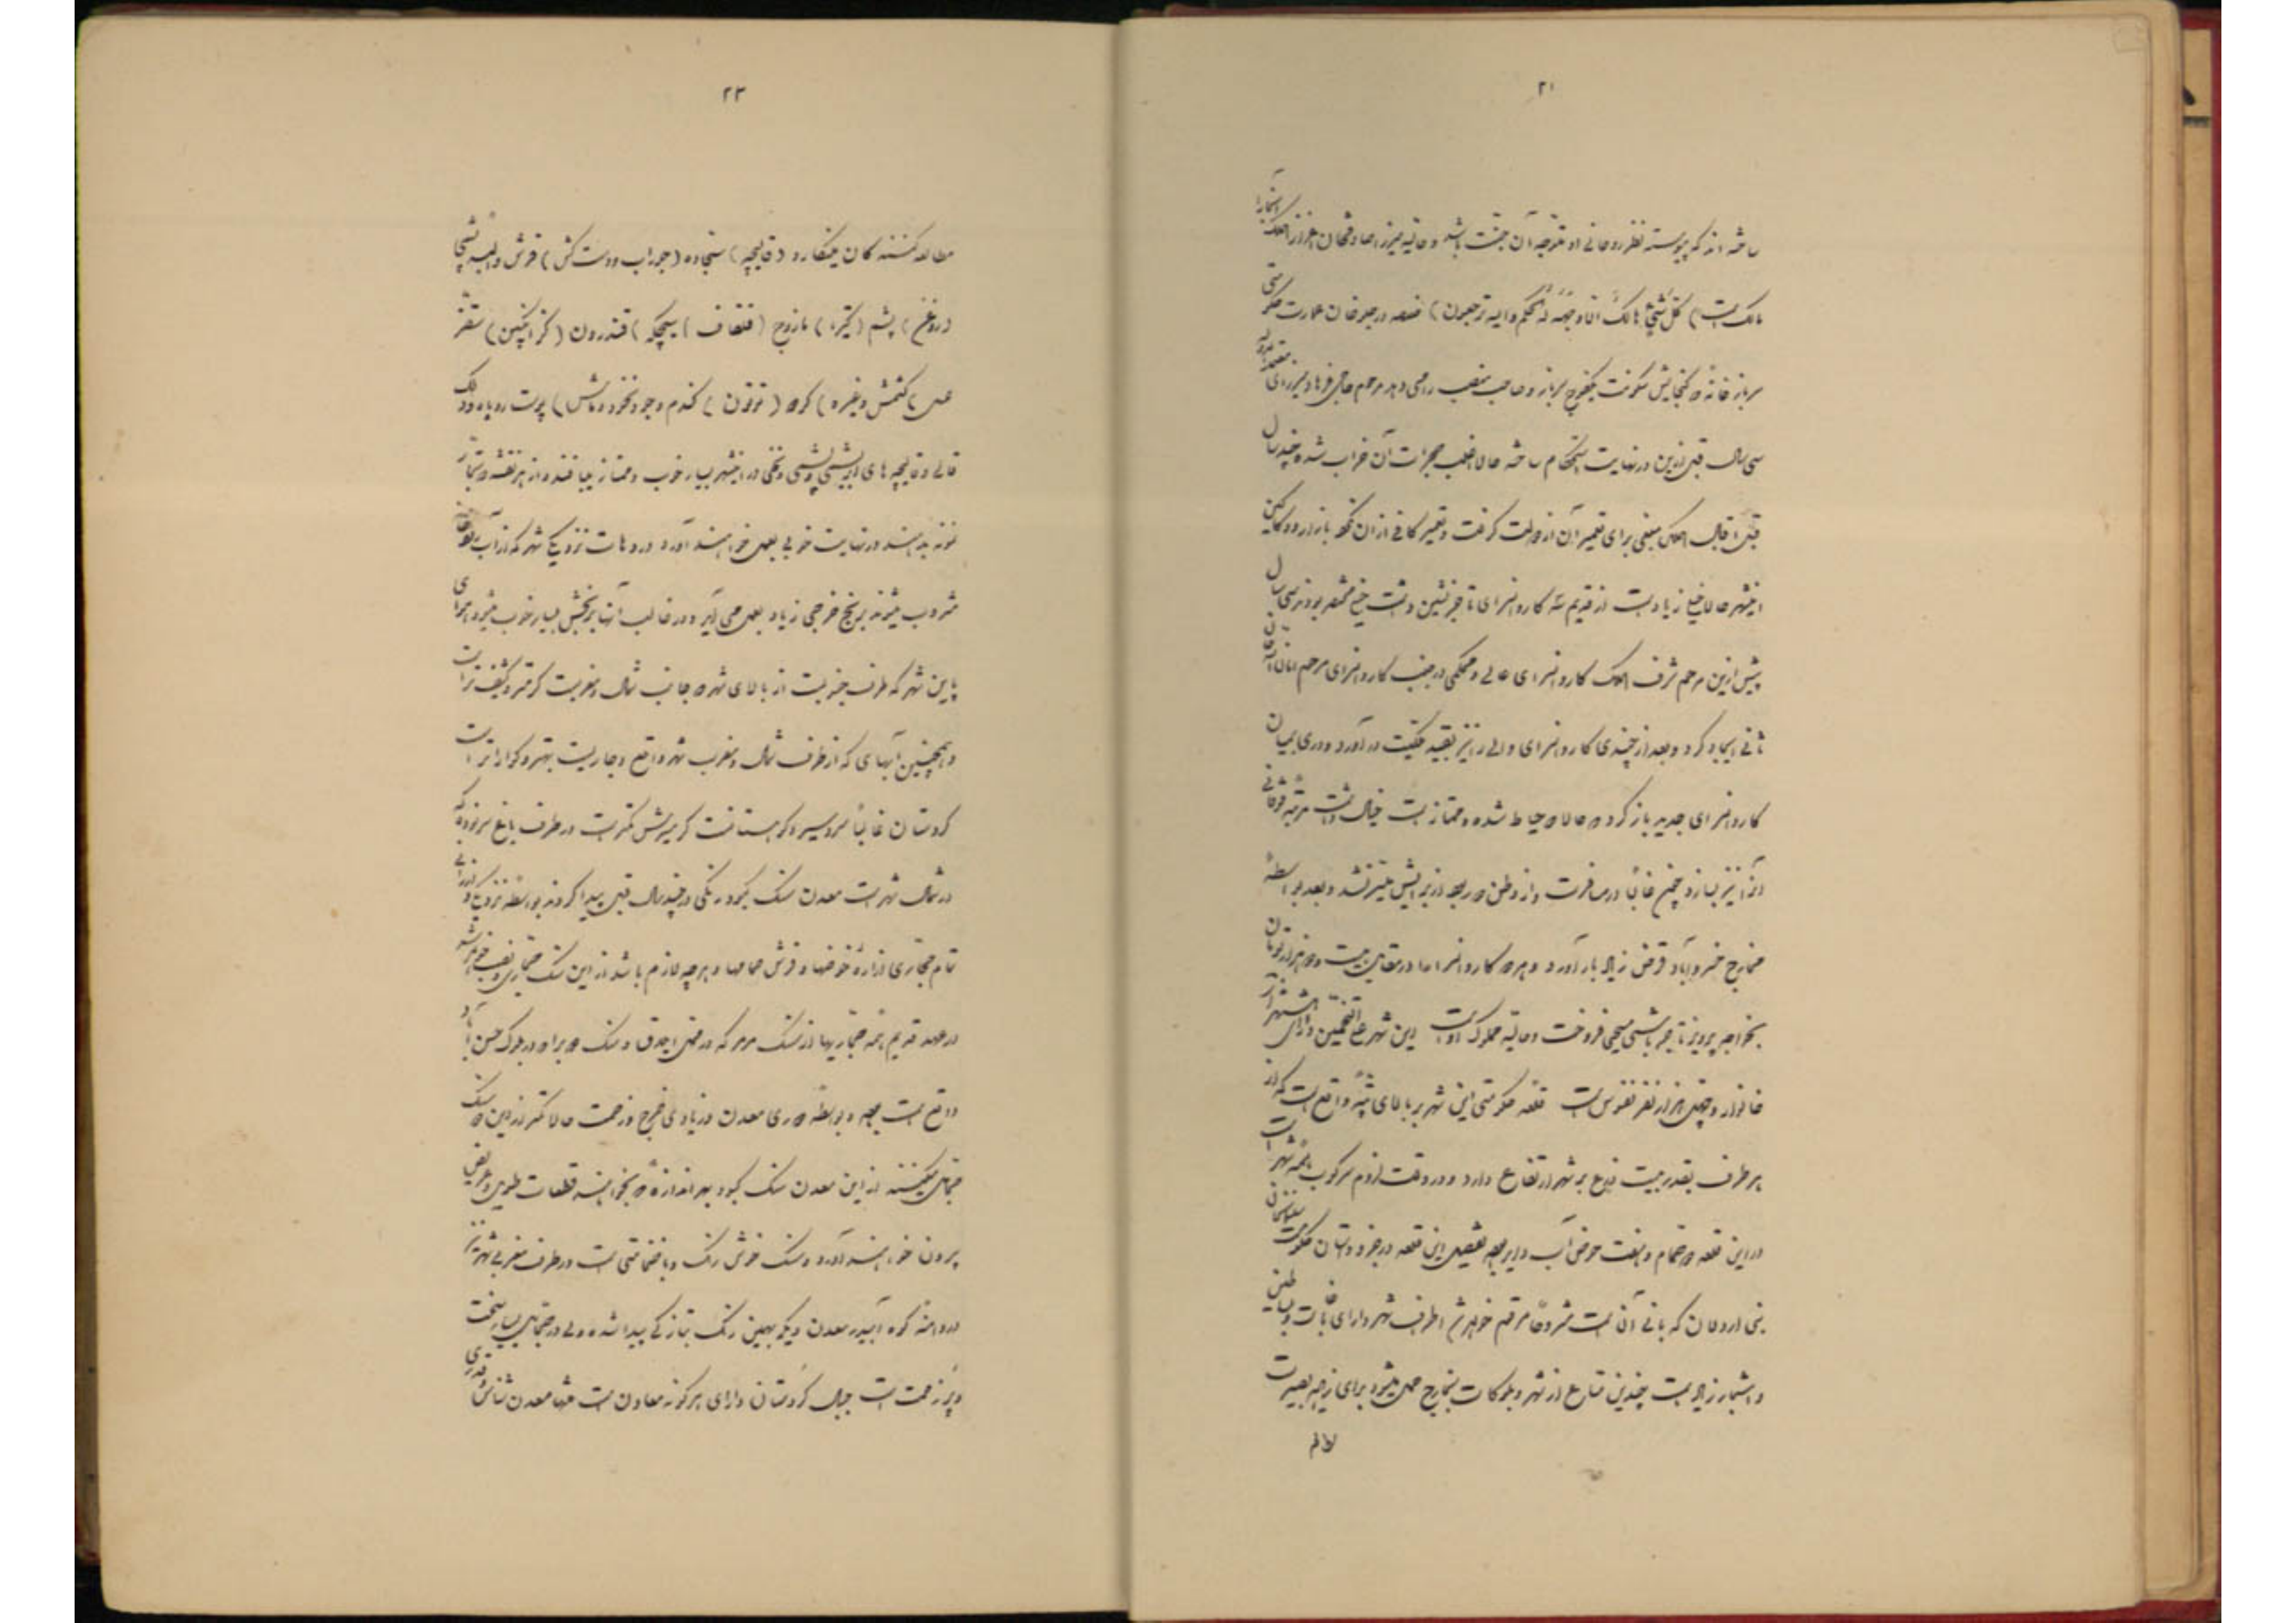 ۲۱
ساخته اند که پیوسته نظر روحانی او متوجه آن جنت باشد و حالیه میرزا صادقخان اعزاز الملک آنجا را
مالک است (کل شیئ هالک الا وجهه له الحکم والیه ترجعون) متصله در جلوخان عمارت حکومتی
سرباز خانه که گنجایش سکونت یکفوج سرباز و صاحب منصب را می دهد مرحوم حاجی فرهاد میرزای معتمدالدوله
سی سال قبل ازین در نهایت استحکام ساخته حالا اغلب حجرات آن خراب شده چند سال
قبل اقبال الملک مبلغی برای تعمیر آن از دولت گرفت و تعمیر کافی از آن نکرد بازار و دکاکین
اینشهر حالا خیلی زیاد است از قدیم سه کاروانسرای تاجر نشین داشت خیلی مختصر بودند سی سال
پیش ازین مرحوم شرف الملک کاروانسرای عالی و محکمی در جنب کاروانسرای مرحوم امان الله خان
ثانی ایجاد کرد و بعد از چندی کاروانسرای والی را نیز بقید ملکیت در آورد و دری بمیان
کاروانسرای جدید باز کرد که حالا دو حیاط شده و ممتاز است خیال داشت مرتبه فوقانی
آنرا نیز بسازد چون غالبا در مسافرت و از وطن دور بود از برایش میسر نشد و بعد بواسطه
مخارج خسروآباد قرض زیاد بار آورد و هر دو کاروانسرا را در مقابل بیست و دو هزار تومان
بخواجه پرویز تاجر باشی مسیحی فروخت و حالیه مملوک اوست این شهر علی التخمین دارای هشت هزار
خانوار و چهل هزار نفر نفوس است قلعه حکومتی این شهر بر بالای تپه واقع است که از
هر طرف بقدر بیست ذرع بر شهر ارتفاع دارد و در وقت لزوم سرکوب همه شهر است
در این قلعه دو حمام و هفت حوض آب دایر بوده تفصیل این قلعه در جزو داستان حکومت سلیمانخان
بنی اردلان که بانی آن است مشروحا مرقوم خواهد شد اطراف شهر دارای باغات و بساتین
و اشجار زیاد است چندین متاع از شهر و بلوکات بخارج حمل میشود برای مزید بصیرت
مطالعه
۲۳
مطالعه کنندگان مینگارد (قالیچه) سجاده (جوراب و دست کش) فرش و البسه پشمی
(روغن) پشم (کتیرا) مازوج (قلقاف) سیچکه) قندرون (کزانگبین) سقز
عسل (کشمش و غیره) کره (توتون) گندم و جو و نخود و ماش) پوست روباه و دلک
قالی و قالیچه های ابریشمی و پشمی و نخی در اینشهر بسیار خوب و ممتاز میبافند و از هر نقشه که بتجار
نمونه بدهند در نهایت خوبی بعمل خواهند آورد در دهات نزدیک شهر که از آب رودخانه
مشروب میشوند برنج خرجی زیاد بعمل می آید و در غالب آنها برنجش بسیار خوب میشود هوای
پایین شهر که طرف جنوبست از بالای شهر که جانب شمال و مغربست گرمتر و کثیف تر است
و همچنین آبهای که از طرف شمال و مغرب شهر واقع و جاریست بهتر و گواراتر است
کردستان غالبا سردسیر و کوهستانست گرمسیرش کمتر است در طرف باغ سرنوره که
در شمال شهر است معدن سنگ کبود رنگی در چند سال قبل پیدا کردند بواسطه نزدیکی و ارزانی
تمام حجاری ازاره حوضها و فرش حمامها و هر چه لازم باشد از این سنگ حجاری و نصب خواهد شد
در عهد قدیم همه حجاریها از سنگ مرمر که در محل اجدق و سنگ دو برادر در بلوک حسن آباد
واقع است بوده بواسطه دوری معدن و زیادی خرج و زحمت حالا کمتر از این دو سنگ
حجاری میکنند از این معدن سنگ کبود بهر اندازه که بخواهند قطعات طویل و عریض
بیرون خواهند آورد و سنگ خوش رنگ و با ضخامتی است در طرف مغربی شهر نیز
در دامنه کوه آبیدر معدن دیگر بهمین رنگ بتازگی پیدا شده ولی در حجاری بسیار سخت
و پر زحمت است جبال کردستان دارای هر گونه معادن است منتها معدن شناس قدری